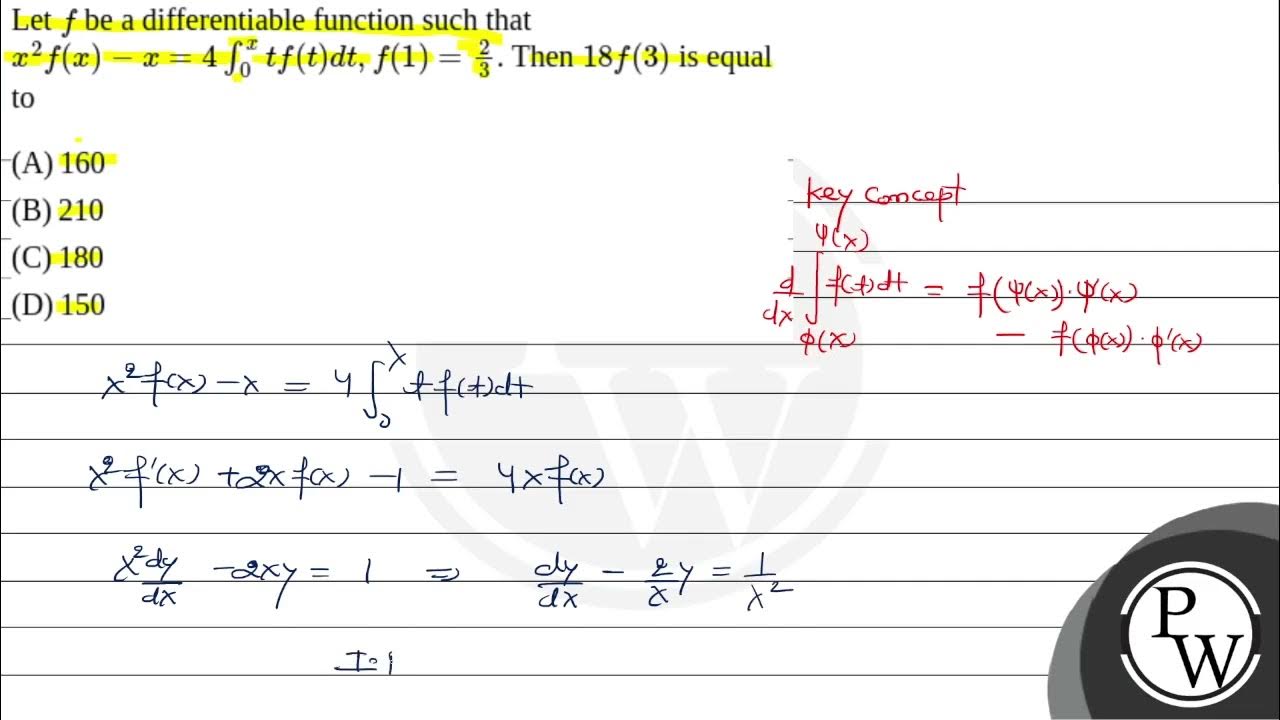 Let f be a differentiable function such that
x² f(x) − x = 4 ∫₀ˣ tf(t)dt, f(1) = 2/3. Then 18f(3) is equal
to
(A) 160
(B) 210
(C) 180
(D) 150
key concept
d/dx ∫_{φ(x)}^{ψ(x)} f(t)dt = f(ψ(x))·ψ'(x)
− f(φ(x))·φ'(x)
x² f(x) − x = 4 ∫₀ˣ t f(t)dt
x² f'(x) + 2x f(x) − 1 = 4x f(x)
x² dy/dx − 2xy = 1 ⇒ dy/dx − 2/x y = 1/x²
PW